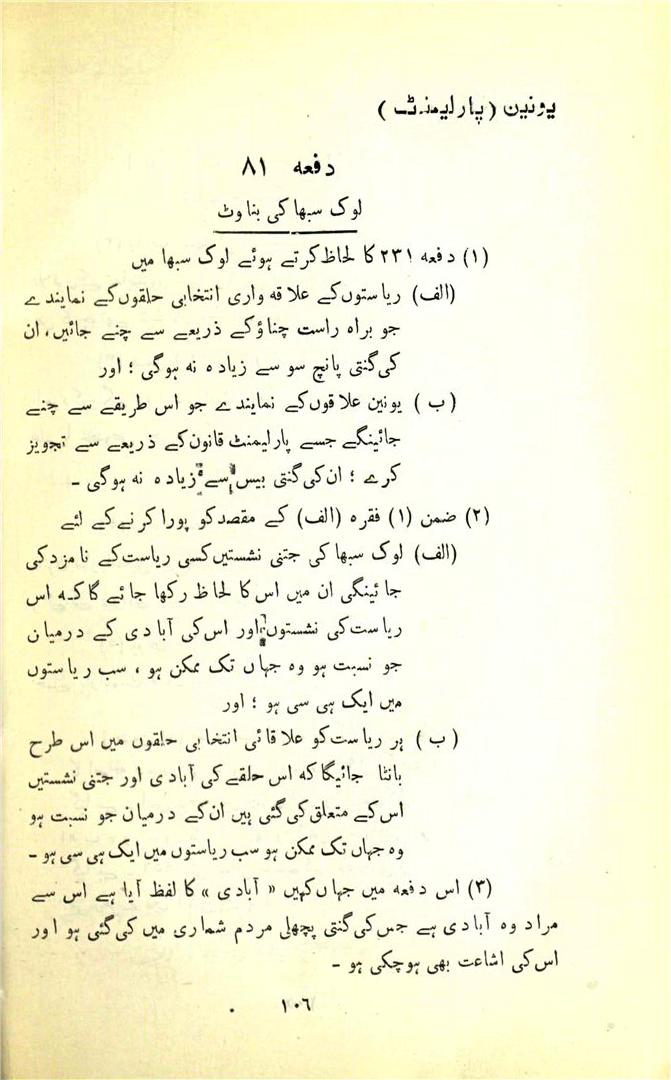 یونین (پارلیمنٹ)
دفعہ ۸۱
لوک سبھا کی بناوٹ
(۱) دفعہ ۲۳۱ کا لحاظ کرتے ہوئے لوک سبھا میں
(الف) ریاستوں کے علاقہ واری انتخابی حلقوں کے نمایندے
جو براہ راست چناؤ کے ذریعے سے چنے جائیں، ان
کی گنتی پانچ سو سے زیادہ نہ ہوگی ؛ اور
(ب) یونین علاقوں کے نمایندے جو اس طریقے سے چنے
جائینگے جسے پارلیمنٹ قانون کے ذریعے سے تجویز
کرے ؛ ان کی گنتی بیس سے زیادہ نہ ہوگی ۔
(۲) ضمن (۱) فقرہ (الف) کے مقصد کو پورا کرنے کے لئے
(الف) لوک سبھا کی جتنی نشستیں کسی ریاست کے نامزد کی
جائینگی ان میں اس کا لحاظ رکھا جائے گا کہ اس
ریاست کی نشستوں اور اس کی آبادی کے درمیان
جو نسبت ہو وہ جہاں تک ممکن ہو ، سب ریاستوں
میں ایک ہی سی ہو ؛ اور
(ب) ہر ریاست کو علاقائی انتخابی حلقوں میں اس طرح
بانٹا جائیگا کہ اس حلقے کی آبادی اور جتنی نشستیں
اس کے متعلق کی گئی ہیں ان کے درمیان جو نسبت ہو
وہ جہاں تک ممکن ہو سب ریاستوں میں ایک ہی سی ہو ۔
(۳) اس دفعہ میں جہاں کہیں « آبادی » کا لفظ آیا ہے اس سے
مراد وہ آبادی ہے جس کی گنتی پچھلی مردم شماری میں کی گئی ہو اور
اس کی اشاعت بھی ہوچکی ہو ۔
۱۰۶